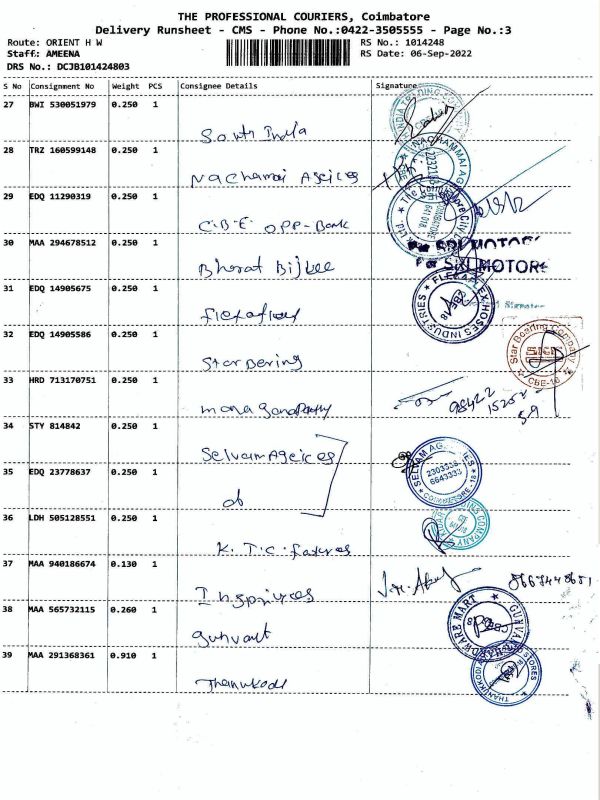 THE PROFESSIONAL COURIERS, Coimbatore
Delivery Runsheet - CMS - Phone No.:0422-3505555 - Page No.:3
Route: ORIENT H W
RS No.: 1014248
Staff: AMEENA
RS Date: 06-Sep-2022
DRS No.: DCJB101424803
S No Consignment No Weight PCS Consignee Details Signature
27 BWI 530051979 0.250 1
South India
28 TRZ 160599148 0.250 1
Nachamai Ageices
29 EDQ 11290319 0.250 1
C.B.E opp-Bank
30 MAA 294678512 0.250 1
Bharat Bijlee
For SRI MOTORS
For SRI MOTORS
31 EDQ 14905675 0.250 1
FLEXAFLEX HOSES INDUSTRIES
CBE-18
32 EDQ 14905586 0.250 1
Star Bering
Star Bearing Company
CBE-18
33 HRD 713170751 0.250 1
mona Ganapathy
98422
15252
59
34 STY 842 0.250 1
Selvam Ageices
SELVAM AG
2303338
6643333
COIMBATORE-18
35 EDQ 23778637 0.250 1
do
36 LDH 505128551 0.250 1
K.T.C.
37 MAA 940186674 0.130 1
8667448651
38 MAA 565732115 0.260 1
gunvant
HARDWARE MART GUNVANT
39 MAA 291368361 0.910 1
Thanukodi
STORES